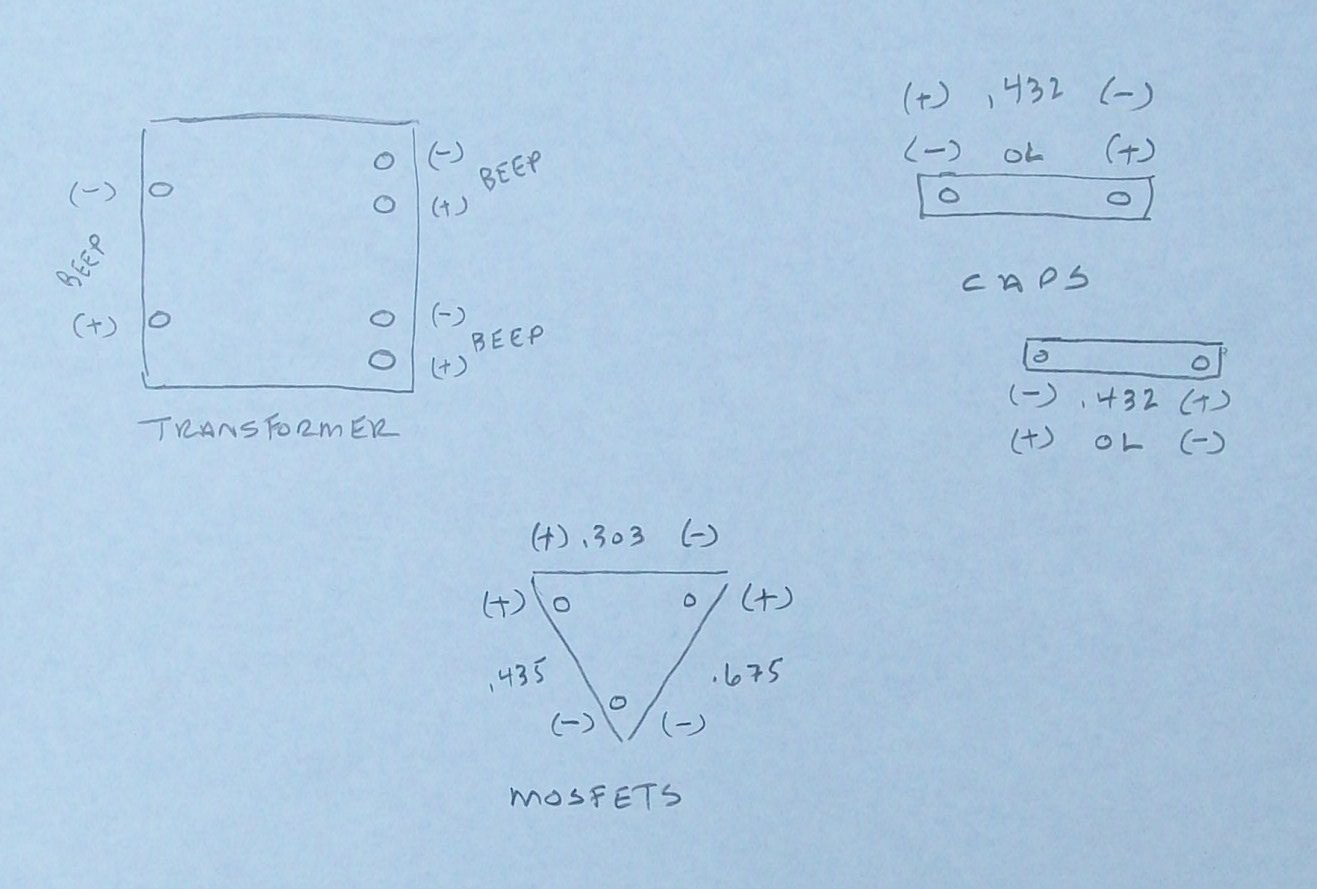 (-) BEEP (+)
(-) BEEP (+)
(-) BEEP (+)
TRANSFORMER
(+) .432 (-)
(-) OL (+)
CAPS
(-) .432 (+)
(+) OL (-)
(+) .303 (-)
(+) (+)
.435 .675
(-) (-)
MOSFETS